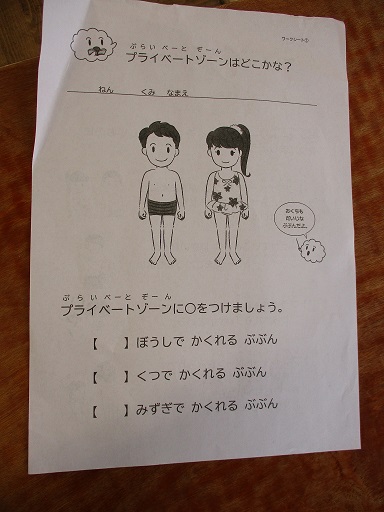 ワークシート①
ぷらいべーと ぞーん
プライベートゾーンはどこかな？
ねん くみ なまえ
おくちも
だいじな
ぶぶんだよ。
ぷらいべーと ぞーん
プライベートゾーンに〇をつけましょう。
【 】ぼうしで かくれる ぶぶん
【 】くつで かくれる ぶぶん
【 】みずぎで かくれる ぶぶん